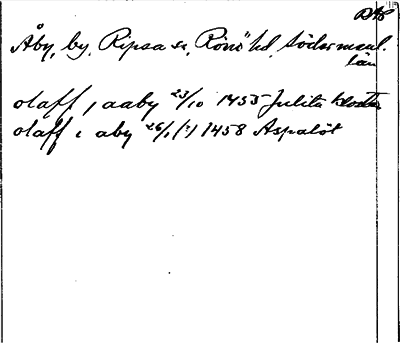 DMS
Åby, by, Ripsa sn, Rönö hd, Södermanl.
län
olaff i aaby 23/10 1455 Julita kloster
olaff i aby 26/1 (?) 1458 Aspalöt